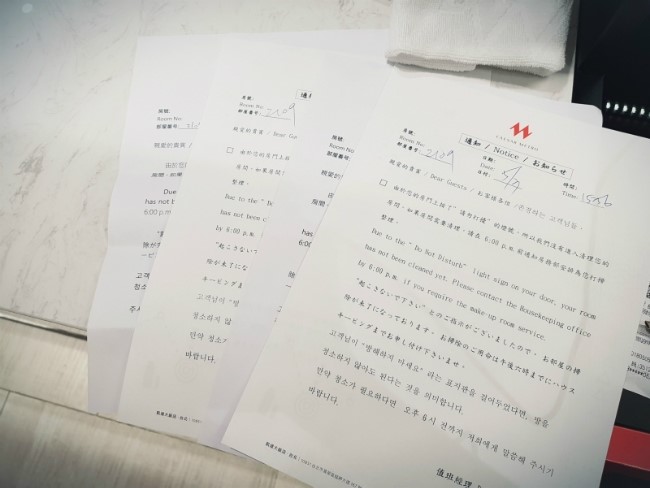 CAESAR METRO
通知 / Notice / お知らせ
房號:
Room No:
部屋番号:
2109
日期:
Date:
日付:
5/7
時間:
Time:
親愛的貴賓 / Dear Guests / お客様各位 / 존경하는 고객님들,
□ 由於您的房門上按了"請勿打掃"的燈號,所以我們沒有進入清理您的
房間,如果房間需要清理,請在 6:00 p.m. 前通知房務部安排為您打掃
整理。
Due to the "Do Not Disturb" light sign on your door, your room
has not been cleaned yet. Please contact the Housekeeping office
by 6:00 p.m. if you require the make-up room service.
"起こさないで下さい"とのご指示がございましたので、お部屋の掃
除が未了になっております。お掃除のご用命は午後六時までにハウス
キーピングまでお申し付け下さいませ。
고객님이 "방해하지 마세요" 라는 표지판을 걸어두었다면, 방을
청소하지 않아도 된다는 것을 의미합니다.
만약 청소가 필요하다면, 오후 6시 전까지 저희에게 말씀해 주시기
바랍니다.
值班經理
房號:
Room No:
部屋番号:
2109
親愛的貴賓 / Dear Gu
□ 由於您的房門上按
房間,如果房
整理。
Due to the "D
has not been cl
by 6:00 p.m.
"起こさないで
除が未了にな
キーピングま
고객님이 "방
청소하지 않
만약 청소가
바랍니다.
房號:
Room No
部屋番號
親愛的貴賓 /
由於您
房間,
Due
has not b
6:00 p.m
除が
ービ
고객
청소